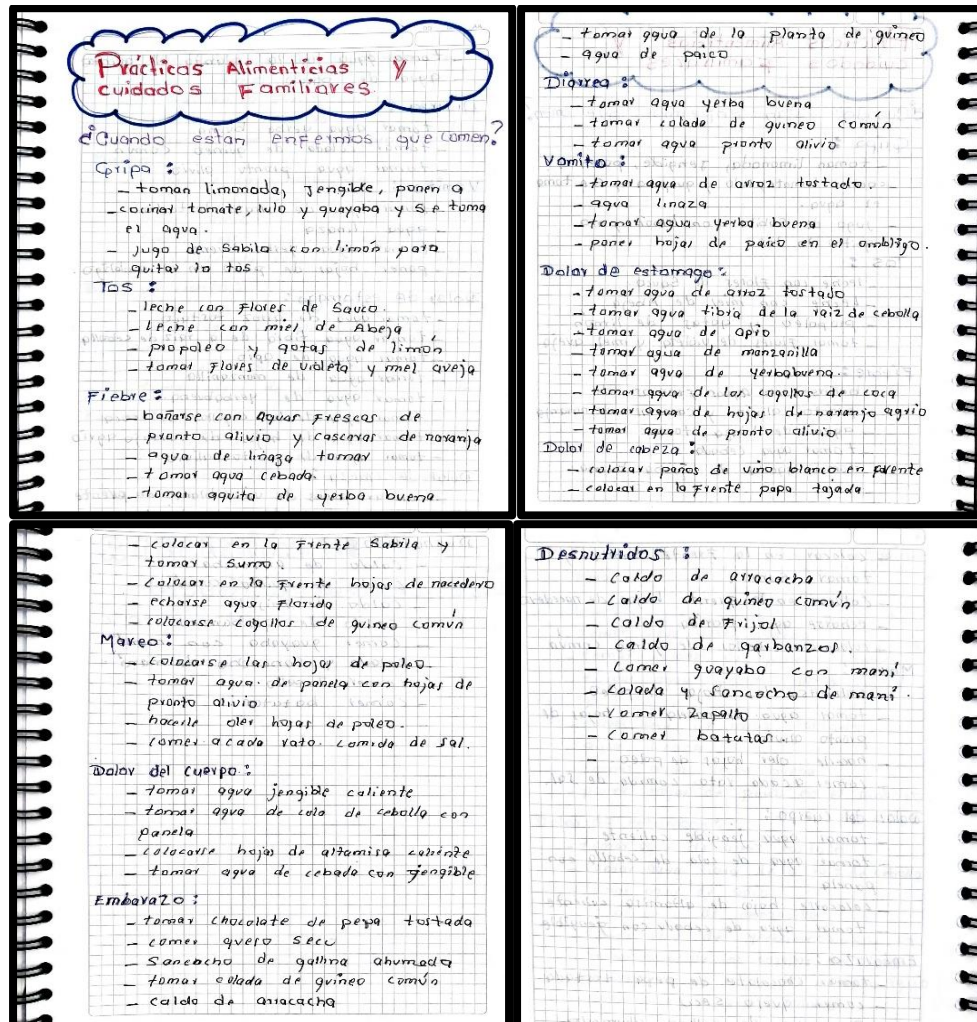 Prácticas Alimenticias y
cuidados Familiares.
¿Cuando estan enfermos que comen?
Gripa :
- toman limonada, Jengible, ponen a
- cocinar tomate, lulo y guayaba y se toma
el agua.
- Jugo de Sabila con limón para
quitar la tos.
Tos :
- leche con Flores de Sauco.
- leche con miel de Abeja
- propoleo y gotas de limón
- tomar Flores de violeta y miel aveja
Fiebre :
- bañarse con aguas Frescas de
pronto alivio y cascaras de naranja
- agua de linaza tomar
- tomar agua cebada.
- tomar aguita de yerba buena
- tomar agua de la planta de guineo
- agua de paico
Diarrea :
- tomar agua yerba buena
- tomar colada de guineo común
- tomar agua pronto alivio
Vomito :
- tomar agua de arroz tostado.
- agua linaza
- tomar agua yerba buena
- poner hojas de paico en el ombligo.
Dolor de estomago :
- tomar agua de arroz tostado
- tomar agua tibia de la raiz de cebolla
- tomar agua de apio
- tomar agua de manzanilla
- tomar agua de yerbabuena
- tomar agua de los cogollos de coca
- tomar agua de hojas de naranjo agrio
- tomar agua de pronto alivio
Dolor de cabeza :
- colocar paños de vino blanco en frente
- colocar en la Frente papa tajada
- colocar en la Frente Sabila y
tomar sumo.
- colocar en la Frente hojas de nacedero
- echarse agua Florida
- colocarse cogollos de guineo común
Mareo :
- colocarse las hojas de poleo.
- tomar agua de panela con hojas de
pronto alivio
- hacerle oler hojas de poleo.
- comer acada rato comida de sal.
Dolor del cuerpo :
- tomar agua jengible caliente
- tomar agua de cola de cebolla con
panela
- colocarse hojas de altamisa caliente
- tomar agua de cebada con Jengible
Embarazo :
- tomar chocolate de pepa tostada
- comer queso seco
- Sancocho de gallina ahumada
- tomar colada de guineo común
- caldo de arracacha
Desnutridos :
- Caldo de arracacha
- Caldo de guineo común
- Caldo de Frijol
- Caldo de garbanzos.
- Comer guayaba con maní
- Colada y Sancocho de maní.
- Comer Zapallo
- Comer batatas.
-